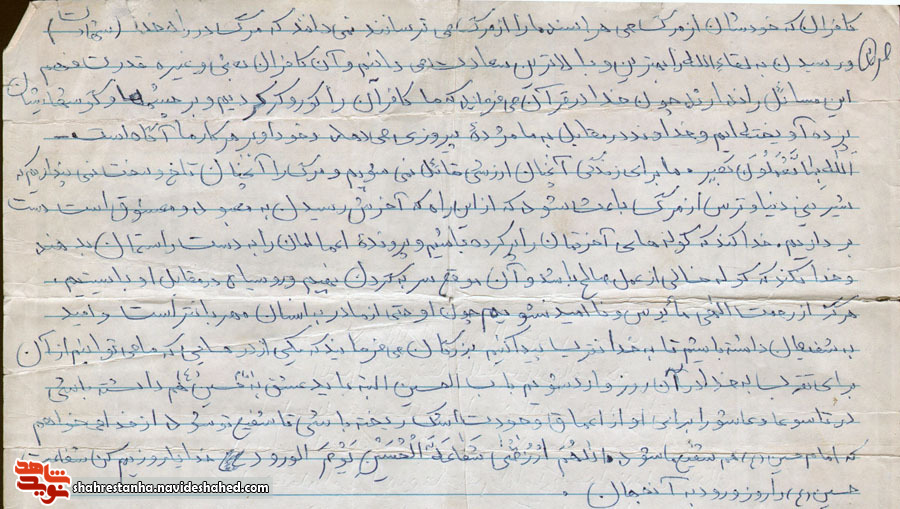 کافران که خودشان از مرگ می هراسند ما را از مرگ می ترسانند نمی دانند که مرگ در راه خدا (شهادت)
و رسیدن به لقاءالله را بهترین و بالاترین سعادت می دانیم و آن کافران یعنی و غیره قدرت فهم
این مسائل را ندارند چون خدا در قرآن می فرماید که ما کافران را کور و کر کردیم و بر چشمها و گوشهایشان
پرده آویخته ایم و خداوند در مقابل به ما مژدهٔ پیروزی می دهد و خود او بر هر کار ما آگاه است
الله بما تعملون خبیر. ما برای زندگی آنچنان ارزشی قائل نمی شویم و مرگ را آنچنان تلخ و سخت نمی پنداریم که
شیرینی دنیا و ترس از مرگ باعث شود که از این راه که آخرش رسیدن به معبود و معشوق است دست
برداریم. خدا کند که کوله های آخرتمان را پر کرده باشیم و پروندهٔ اعمالمان را به دست راستمان بدهند
و خدا نکند که کوله خالی از عمل صالح باشد و آن موقع سر به گردن نهیم و رو سیاه در مقابل او بایستیم.
هرگز از رحمت الهی مأیوس و ناامید نشویم چون او حتی از مادر به انسان مهربانتر است و امید
به شفیعان داشته باشیم تا به خدا تقرب پیدا کنیم بزرگان می فرمایند که یکی از درهایی که ما می توانیم از آن
برای تقرب به خدا در آن روز وارد شویم باب الحسین البته باید عشق به حسین (ع) هم داشته باشی
در تاسوعا و عاشورا برای او از اعماق وجودت اشک ریخته باشی تا شفیع تو شود از خدا می خواهم
که امام حسین (ع) هم شفیع ما شود. اللهم ارزقنی شفاعة الحسین یوم الورود خدایا روزیم کن شفاعت
حسین (ع) را روز ورود به آنجهان.
شاهد
نوید
shahrestanha.navideshahed.com